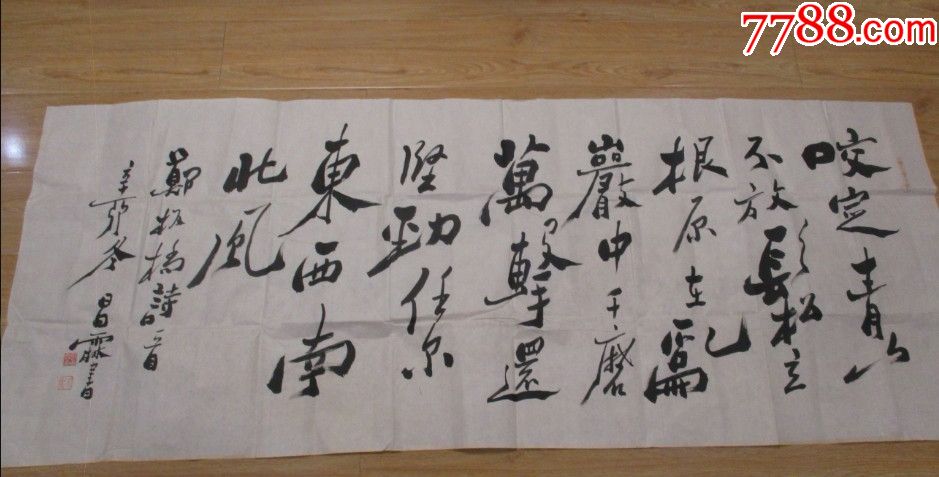 7788.com
咬定青山
不放鬆立
根原在亂
巖中千磨
萬擊還
堅勁任尔
東西南
北風
鄭板橋詩一首
辛卯冬 昌霖書